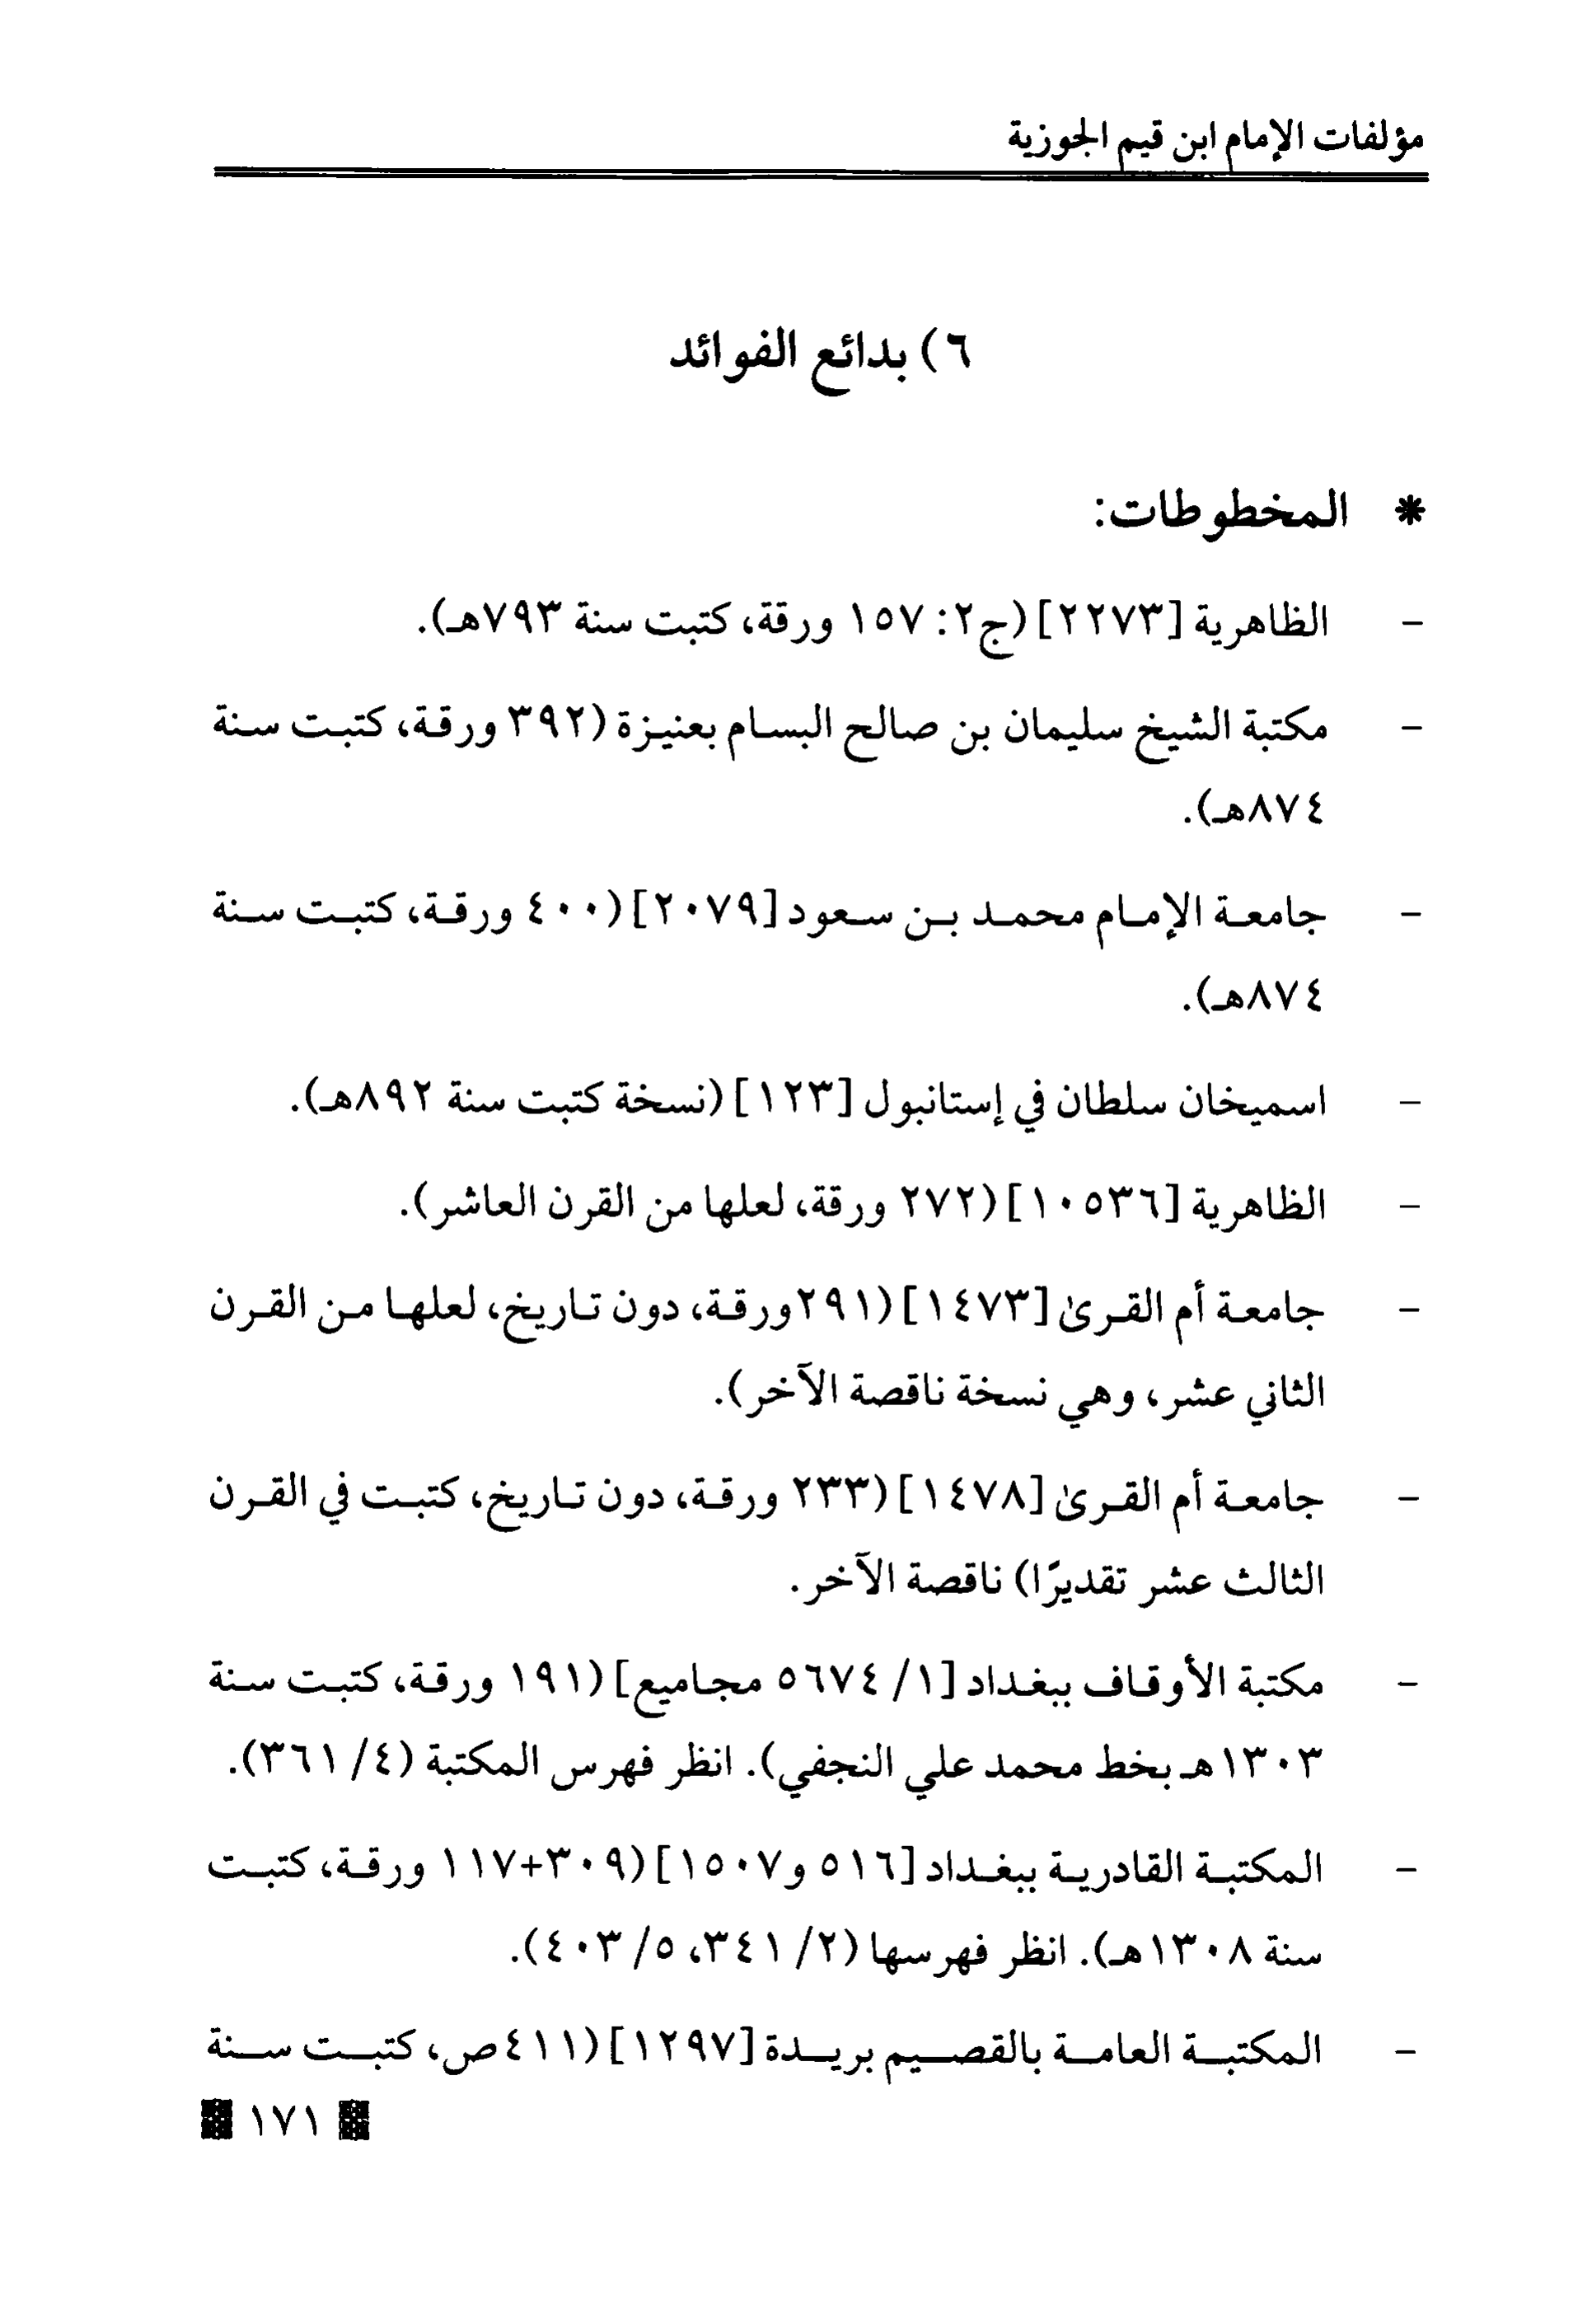 مؤلفات الإمام ابن قيم الجوزية
٦) بدائع الفوائد
* المخطوطات:
- الظاهرية [٢٢٧٣] (ج٢: ١٥٧ ورقة، كتبت سنة ٧٩٣هـ).
- مكتبة الشيخ سليمان بن صالح البسام بعنيزة (٣٩٢ ورقة، كتبت سنة
٨٧٤هـ).
- جامعة الإمام محمد بن سعود [٢٠٧٩] (٤٠٠ ورقة، كتبت سنة
٨٧٤هـ).
- اسميخان سلطان في إستانبول [١٢٣] (نسخة كتبت سنة ٨٩٢هـ).
- الظاهرية [١٠٥٣٦] (٢٧٢ ورقة، لعلها من القرن العاشر).
- جامعة أم القرىٰ [١٤٧٣] (٢٩١ورقة، دون تاريخ، لعلها من القرن
الثاني عشر، وهي نسخة ناقصة الآخر).
- جامعة أم القرىٰ [١٤٧٨] (٢٣٣ ورقة، دون تاريخ، كتبت في القرن
الثالث عشر تقديرًا) ناقصة الآخر.
- مكتبة الأوقاف ببغداد [١/ ٥٦٧٤ مجاميع] (١٩١ ورقة، كتبت سنة
١٣٠٣هـ بخط محمد علي النجفي). انظر فهرس المكتبة (٤/ ٣٦١).
- المكتبة القادرية ببغداد [٥١٦ و١٥٠٧] (٣٠٩+١١٧ ورقة، كتبت
سنة ١٣٠٨هـ). انظر فهرسها (٢/ ٣٤١، ٥/ ٤٠٣).
- المكتبة العامة بالقصيم بريدة [١٢٩٧] (٤١١ص، كتبت سنة
١٧١